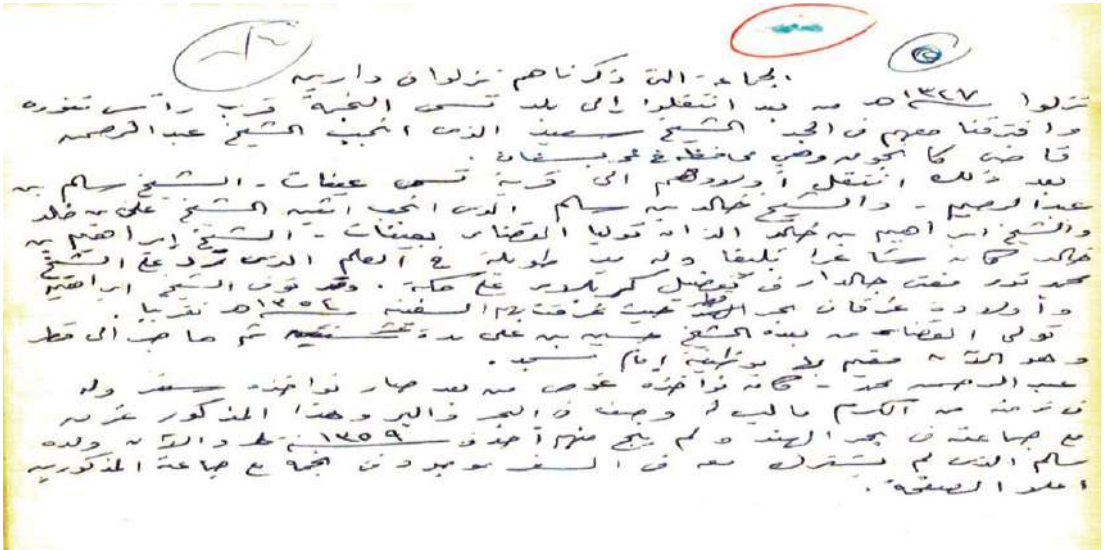 الجماعة التي ذكرناهم نزلوا في دارين
نزلوا سنة ١٣٢٧هـ من بعد انتقلوا إلى بلد تسمى النخبة قرب رأس تنوره
وافترقنا معهم في الجد الشيخ سعيد الذي انجب الشيخ عبدالرحمن
قاضي وهي محافظة في
بعد ذلك انتقل أولادهم الى قرية تسمى عينات - الشيخ سالم بن
عبدالرحيم - والشيخ خالد بن سالم الذي انجب اثنين الشيخ علي بن خالد
والشيخ ابراهيم بن خالد الذان توليا القضاء بعينات - الشيخ إبراهيم بن
خالد كان شاعرا بليغا وله يد طويلة في العلم الذي رد على الشيخ
محمد نور مفتي في تفضيل كربلاء على مكة . وقد توفي الشيخ ابراهيم
وأولاده غرقان بحر حيث غرقت بهم السفينه ١٣٥٢هـ تقريبا .
تولى القضاء من بعده الشيخ حسين بن علي مدة ثم هاجر الى قطر
وهو الآن مقيم بوظيفة إمام مسجد .
عبدالرحمن محمد - كان نواخذه غوص من بعد صار نواخذه سفر وله
في زمنه من الكرم ماليس له وصف في البحر والبر وهذا المذكور غرق
مع جماعته في بحر الهند ولم ينج منهم أحد في سنة ١٣٥٩ والآن ولده
سالم الذي لم يشترك معه في السفر موجود في مع جماعة المذكورين
اعلا الصفحة .